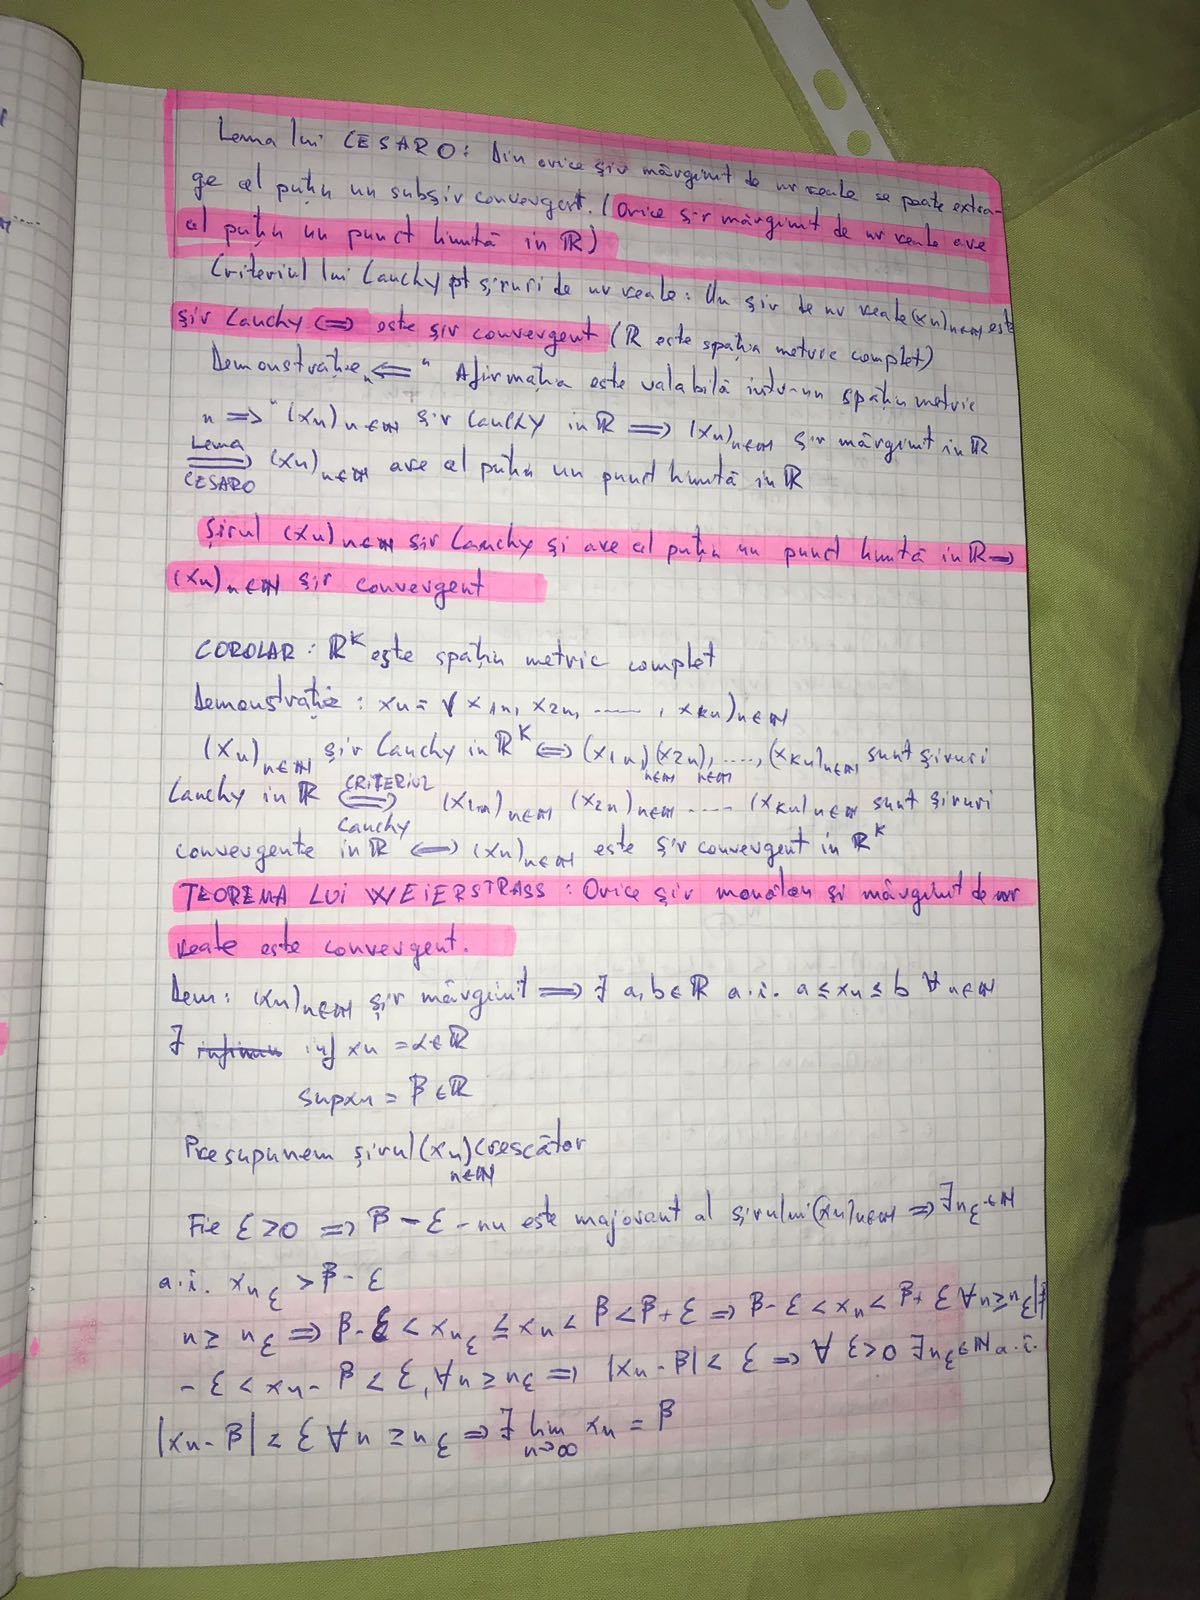 Lema lui CESARO: Din orice șir mărginit de nr reale se poate extra-
ge cel puțin un subșir convergent. (Orice șir mărginit de nr reale are
cel puțin un punct limită in ℝ)
Criteriul lui Cauchy pt șiruri de nr reale: Un șir de nr reale (xn)n∈ℕ este
șir Cauchy ⟺ este șir convergent (ℝ este spațiu metric complet)
Demonstrație „⟸" Afirmația este valabilă intr-un spațiu metric
„⟹" (xn)n∈ℕ șir Cauchy in ℝ ⟹ (xn)n∈ℕ șir mărginit in ℝ
Lema
⟹ (xn)n∈ℕ are cel puțin un punct limită in ℝ
CESARO
Șirul (xn)n∈ℕ șir Cauchy și are cel puțin un punct limită in ℝ ⟹
(xn)n∈ℕ șir convergent
COROLAR: ℝᴷ este spațiu metric complet
Demonstrație: xn = (x1n, x2n, ....., xkn)n∈ℕ
(xn)n∈ℕ șir Cauchy in ℝᴷ ⟺ (x1n)n∈ℕ, (x2n)n∈ℕ, ...., (xKn)n∈ℕ sunt șiruri
Cauchy in ℝ ⟺ CRITERIUL Cauchy (x1n)n∈ℕ (x2n)n∈ℕ ..... (xKn)n∈ℕ sunt șiruri
convergente in ℝ ⟺ (xn)n∈ℕ este șir convergent in ℝᴷ
TEOREMA LUI WEIERSTRASS: Orice șir monoton și mărginit de nr
reale este convergent.
Dem: (xn)n∈ℕ șir mărginit ⟹ ∃ a, b ∈ ℝ a.i. a ≤ xn ≤ b ∀ n∈ℕ
∃ inf xn = α ∈ ℝ
sup xn = β ∈ ℝ
Presupunem șirul (xn)n∈ℕ crescător
Fie ε > 0 ⟹ β - ε - nu este majorant al șirului (xn)n∈ℕ ⟹ ∃ nε ∈ ℕ
a.i. xnε > β - ε
n ≥ nε ⟹ β - ε < xnε ≤ xn < β < β + ε ⟹ β - ε < xn < β + ε ∀ n ≥ nε | β
- ε < xn - β < ε, ∀ n ≥ nε ⟹ |xn - β| < ε ⟹ ∀ ε > 0 ∃ nε ∈ ℕ a.i.
|xn - β| < ε ∀ n ≥ nε ⟹ ∃ lim n→∞ xn = β